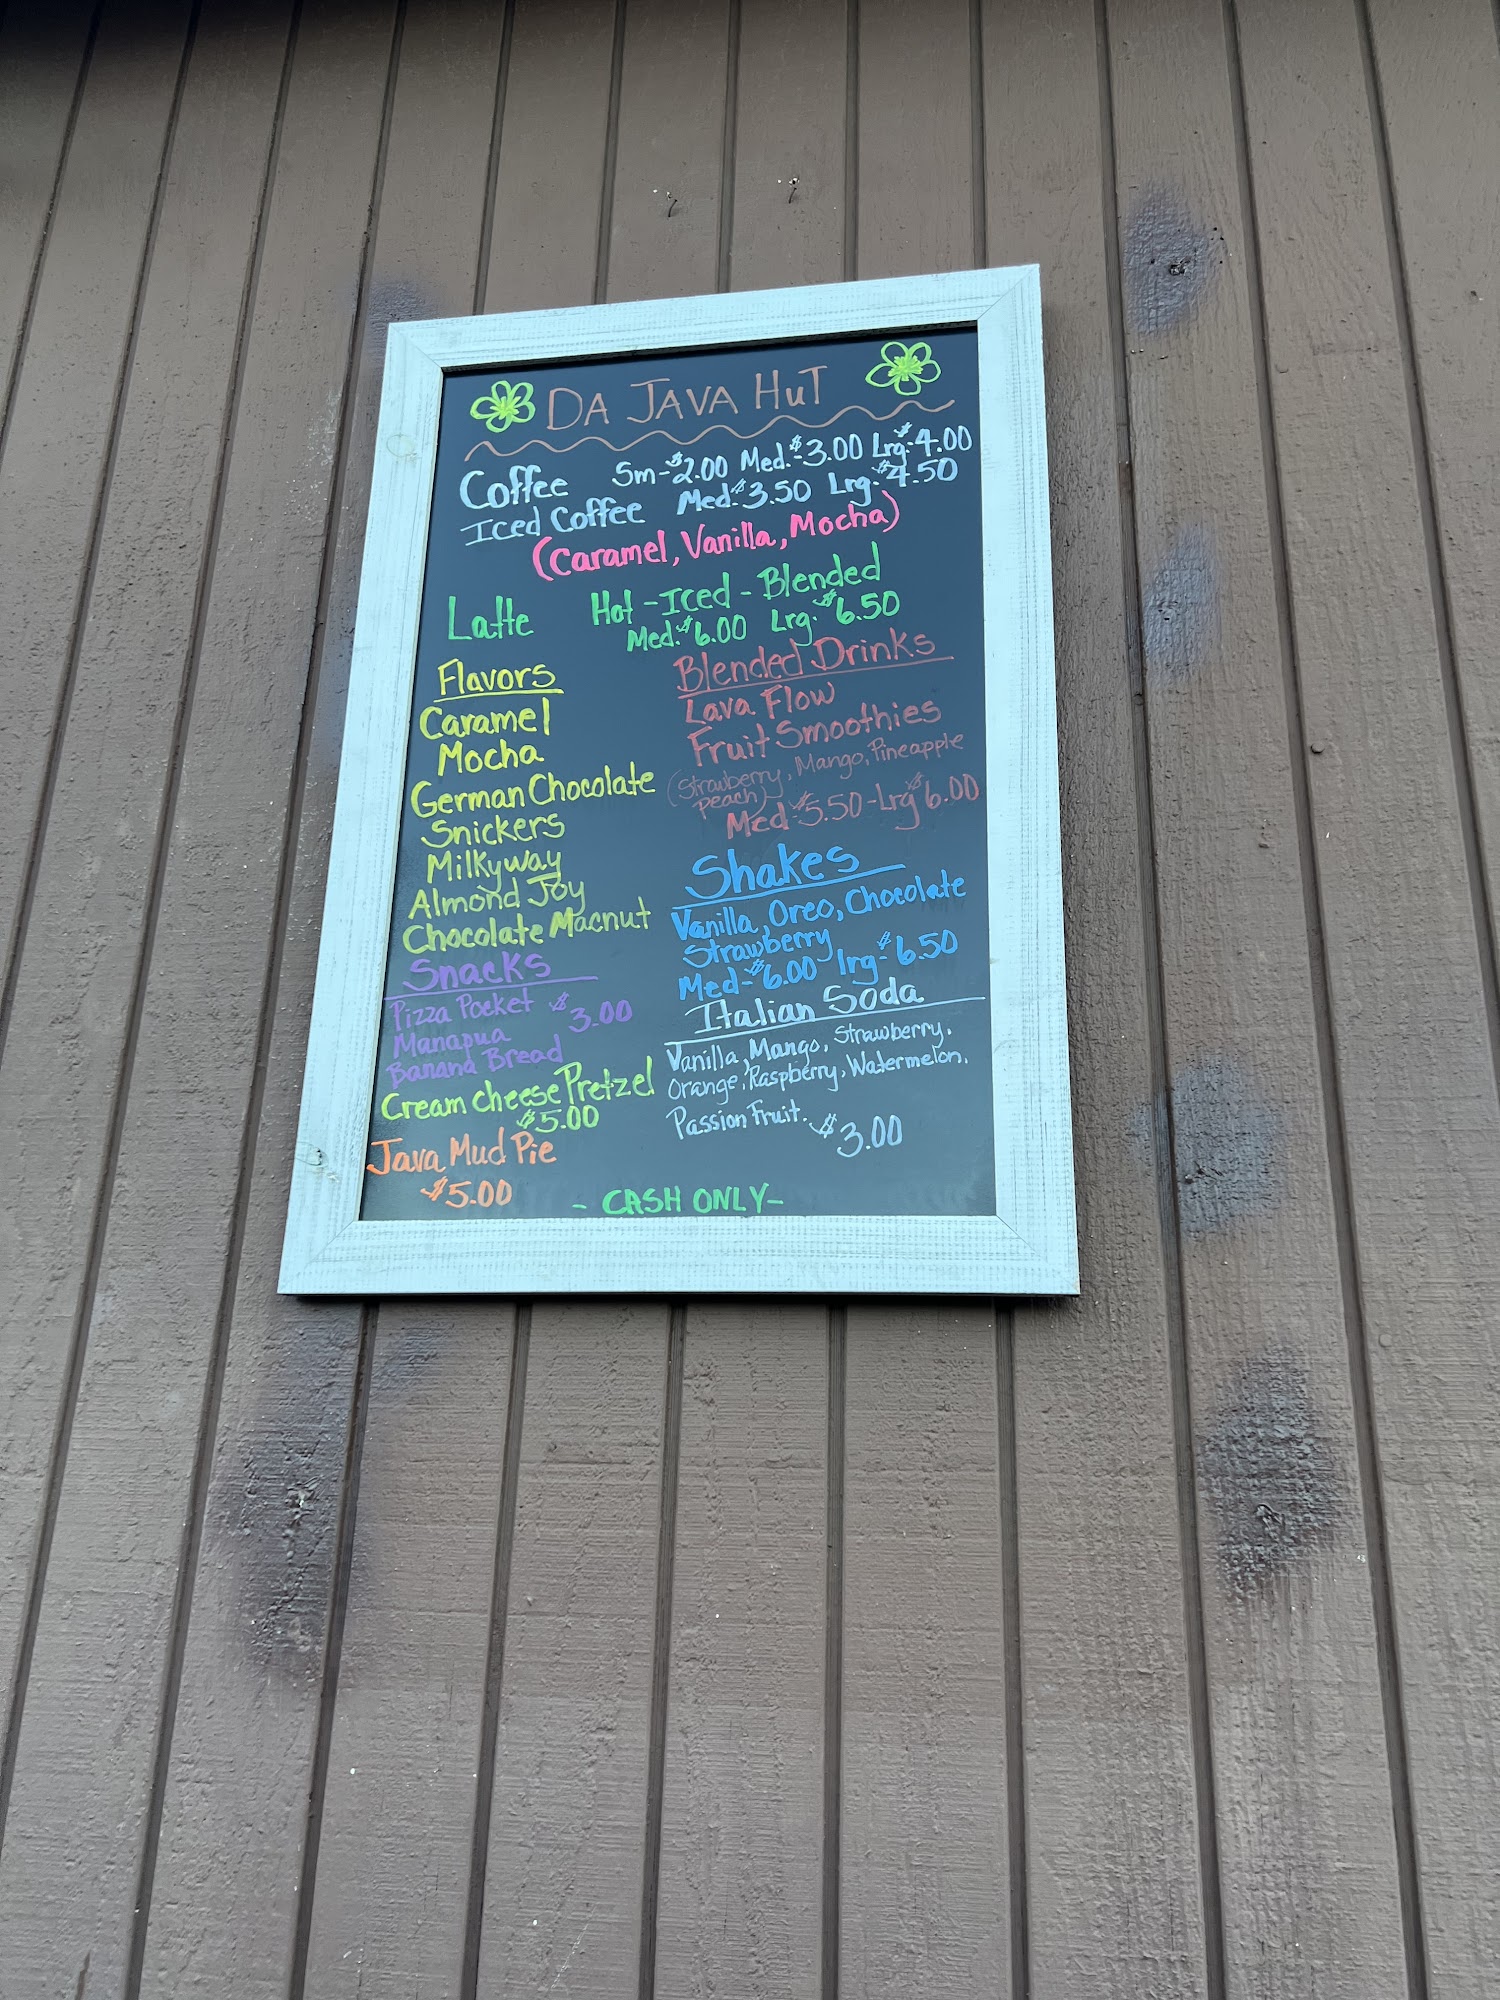 DA JAVA HuT
Coffee Sm-$2.00 Med.-$3.00 Lrg.-$4.00
Iced Coffee Med.$3.50 Lrg.$4.50
(Caramel, Vanilla, Mocha)
Latte Hot - Iced - Blended
Med.$6.00 Lrg.$6.50
Flavors
Caramel
Mocha
German Chocolate
Snickers
Milkyway
Almond Joy
Chocolate Macnut
Snacks
Pizza Pocket $3.00
Manapua
Banana Bread
Cream cheese Pretzel
$5.00
Java Mud Pie
$5.00
Blended Drinks
Lava Flow
Fruit Smoothies
(Strawberry, Mango, Pineapple
Peach)
Med-$5.50-Lrg$6.00
Shakes
Vanilla, Oreo, Chocolate
Strawberry
Med-$6.00 lrg-$6.50
Italian Soda
Vanilla, Mango, Strawberry,
Orange, Raspberry, Watermelon,
Passion Fruit. $3.00
- CASH ONLY-